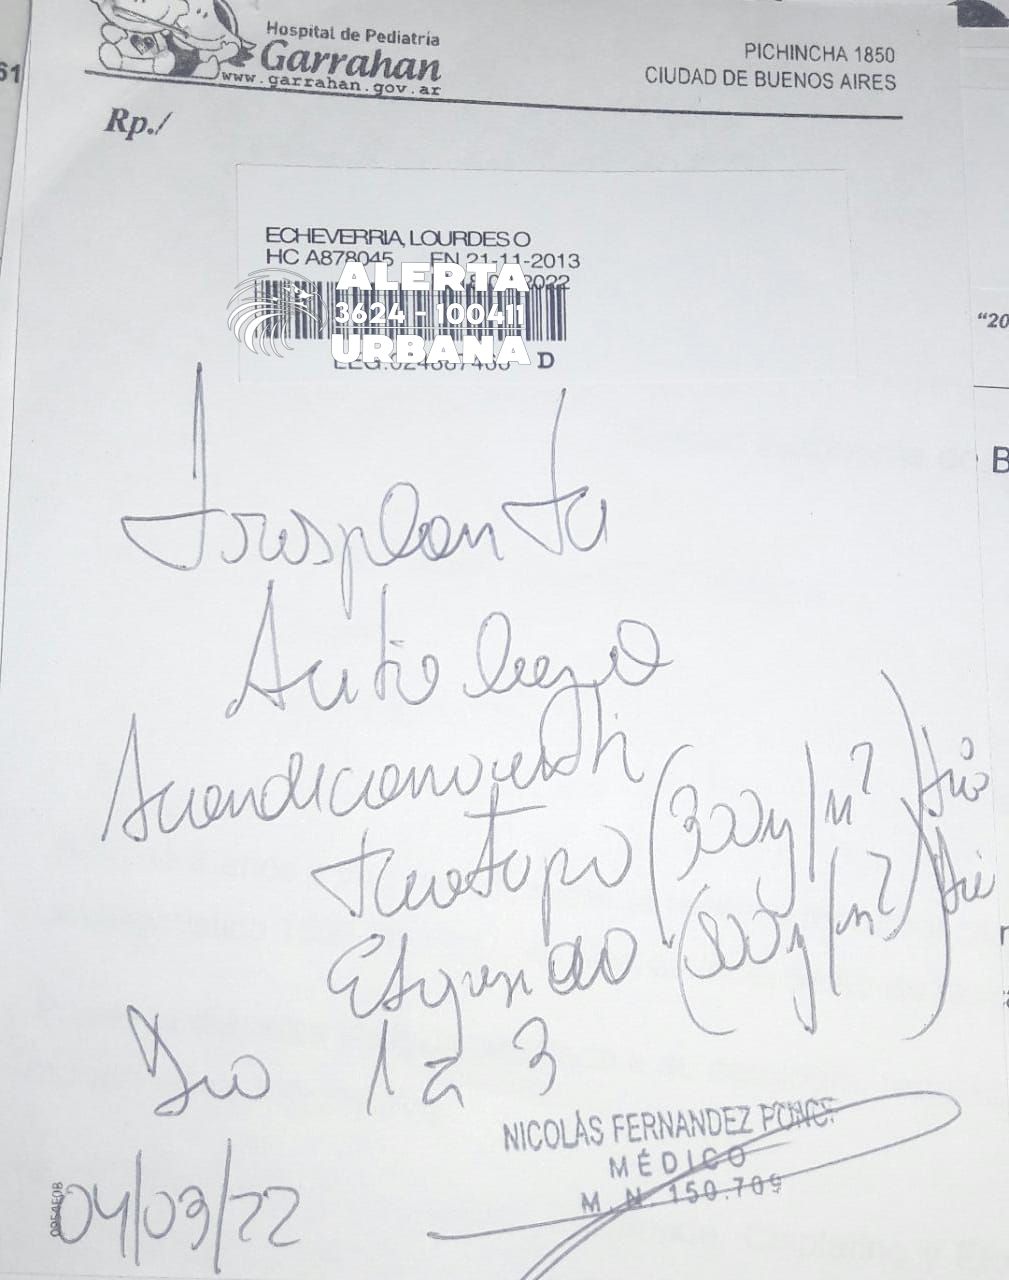 61
Hospital de Pediatría
Garrahan
www.garrahan.gov.ar
PICHINCHA 1850
CIUDAD DE BUENOS AIRES
Rp./
ECHEVERRIA, LOURDES O
HC A878045 FN 21-11-2013
2022
ALERTA
3624 - 100411
URBANA
D
"20
B
Trasplante
Autologo
Acondicionamiento
Tiotepa (300mg/m² día
Etoposido (800mg/m²) día
Dia 1 a 3
NICOLÁS FERNANDEZ PONCE
MÉDICO
M. N. 150.709
04/03/22